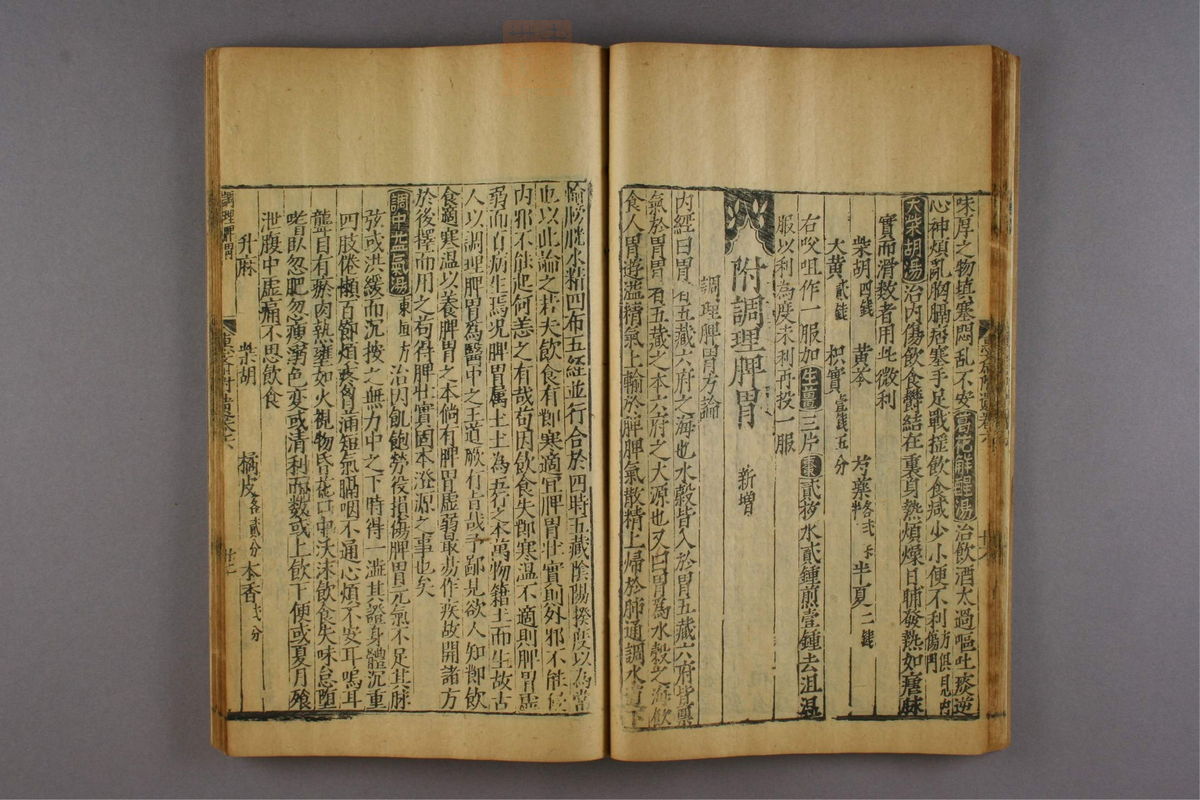 味厚之物填塞悶乱不安葛花解酲湯治飲酒太過嘔吐痰逆
心神煩亂胸膈痞塞手足戰揺飲食减少小便不利方俱見内傷門
大柴胡湯治内傷飲食欝結在裏身熱煩燥日晡發熱如瘧脉
實而滑数者用此微利
柴胡四錢 黄芩 芍藥各弍半夏二錢
大黄貳錢 枳實壹錢五分
右㕮咀作一服加生薑三片棗貳枚水貳鍾煎壹鍾去沮温
服以利為度未利再投一服
附調理脾胃 新増
調理脾胃方論
内經曰胃者五藏六府之海也水穀皆入於胃五藏六府皆禀
氣於胃胃者五藏之本六府之大源也又曰胃為水穀之海飲
食入胃遊溢精氣上輸於脾脾氣散精上歸於肺通調水道下
輸膀胱水精四布五經並行合於四時五藏陰陽揆度以為常
也以此論之若夫飲食有節寒適宜脾胃壮實則外邪不能侵
内邪不能起何恙之有哉苟因飲食失節寒温不適則脾胃虚
弱而百病生焉况脾胃属土土為五行之本萬物籍土而生故古
人以調理脾胃為醫中之王道厥有旨哉予鄙見欲人知節飲
食適寒温以養脾胃之本倘有脾胃虚弱最易作疾故開諸方
於後擇而用之苟得脾壮實固本澄源之事也矣
調中益氣湯東垣方治因飢飽勞役損傷脾胃元氣不足其脉
弦或洪緩而沉按之無力中之下時得一澁其證身體沉重
四肢倦懶百節煩疼胸滿短氣膈咽不通心煩不安耳鳴耳
聾目有瘀肉熱壅如火視物昏花口中沃沫飲食失味怠堕
嗜臥忽肥忽痩溺色変或清利而数或上飲下便或夏月飱
泄腹中虚痛不思飲食
升麻 柴胡 橘皮各貳分 木香弍分
調理脾胃